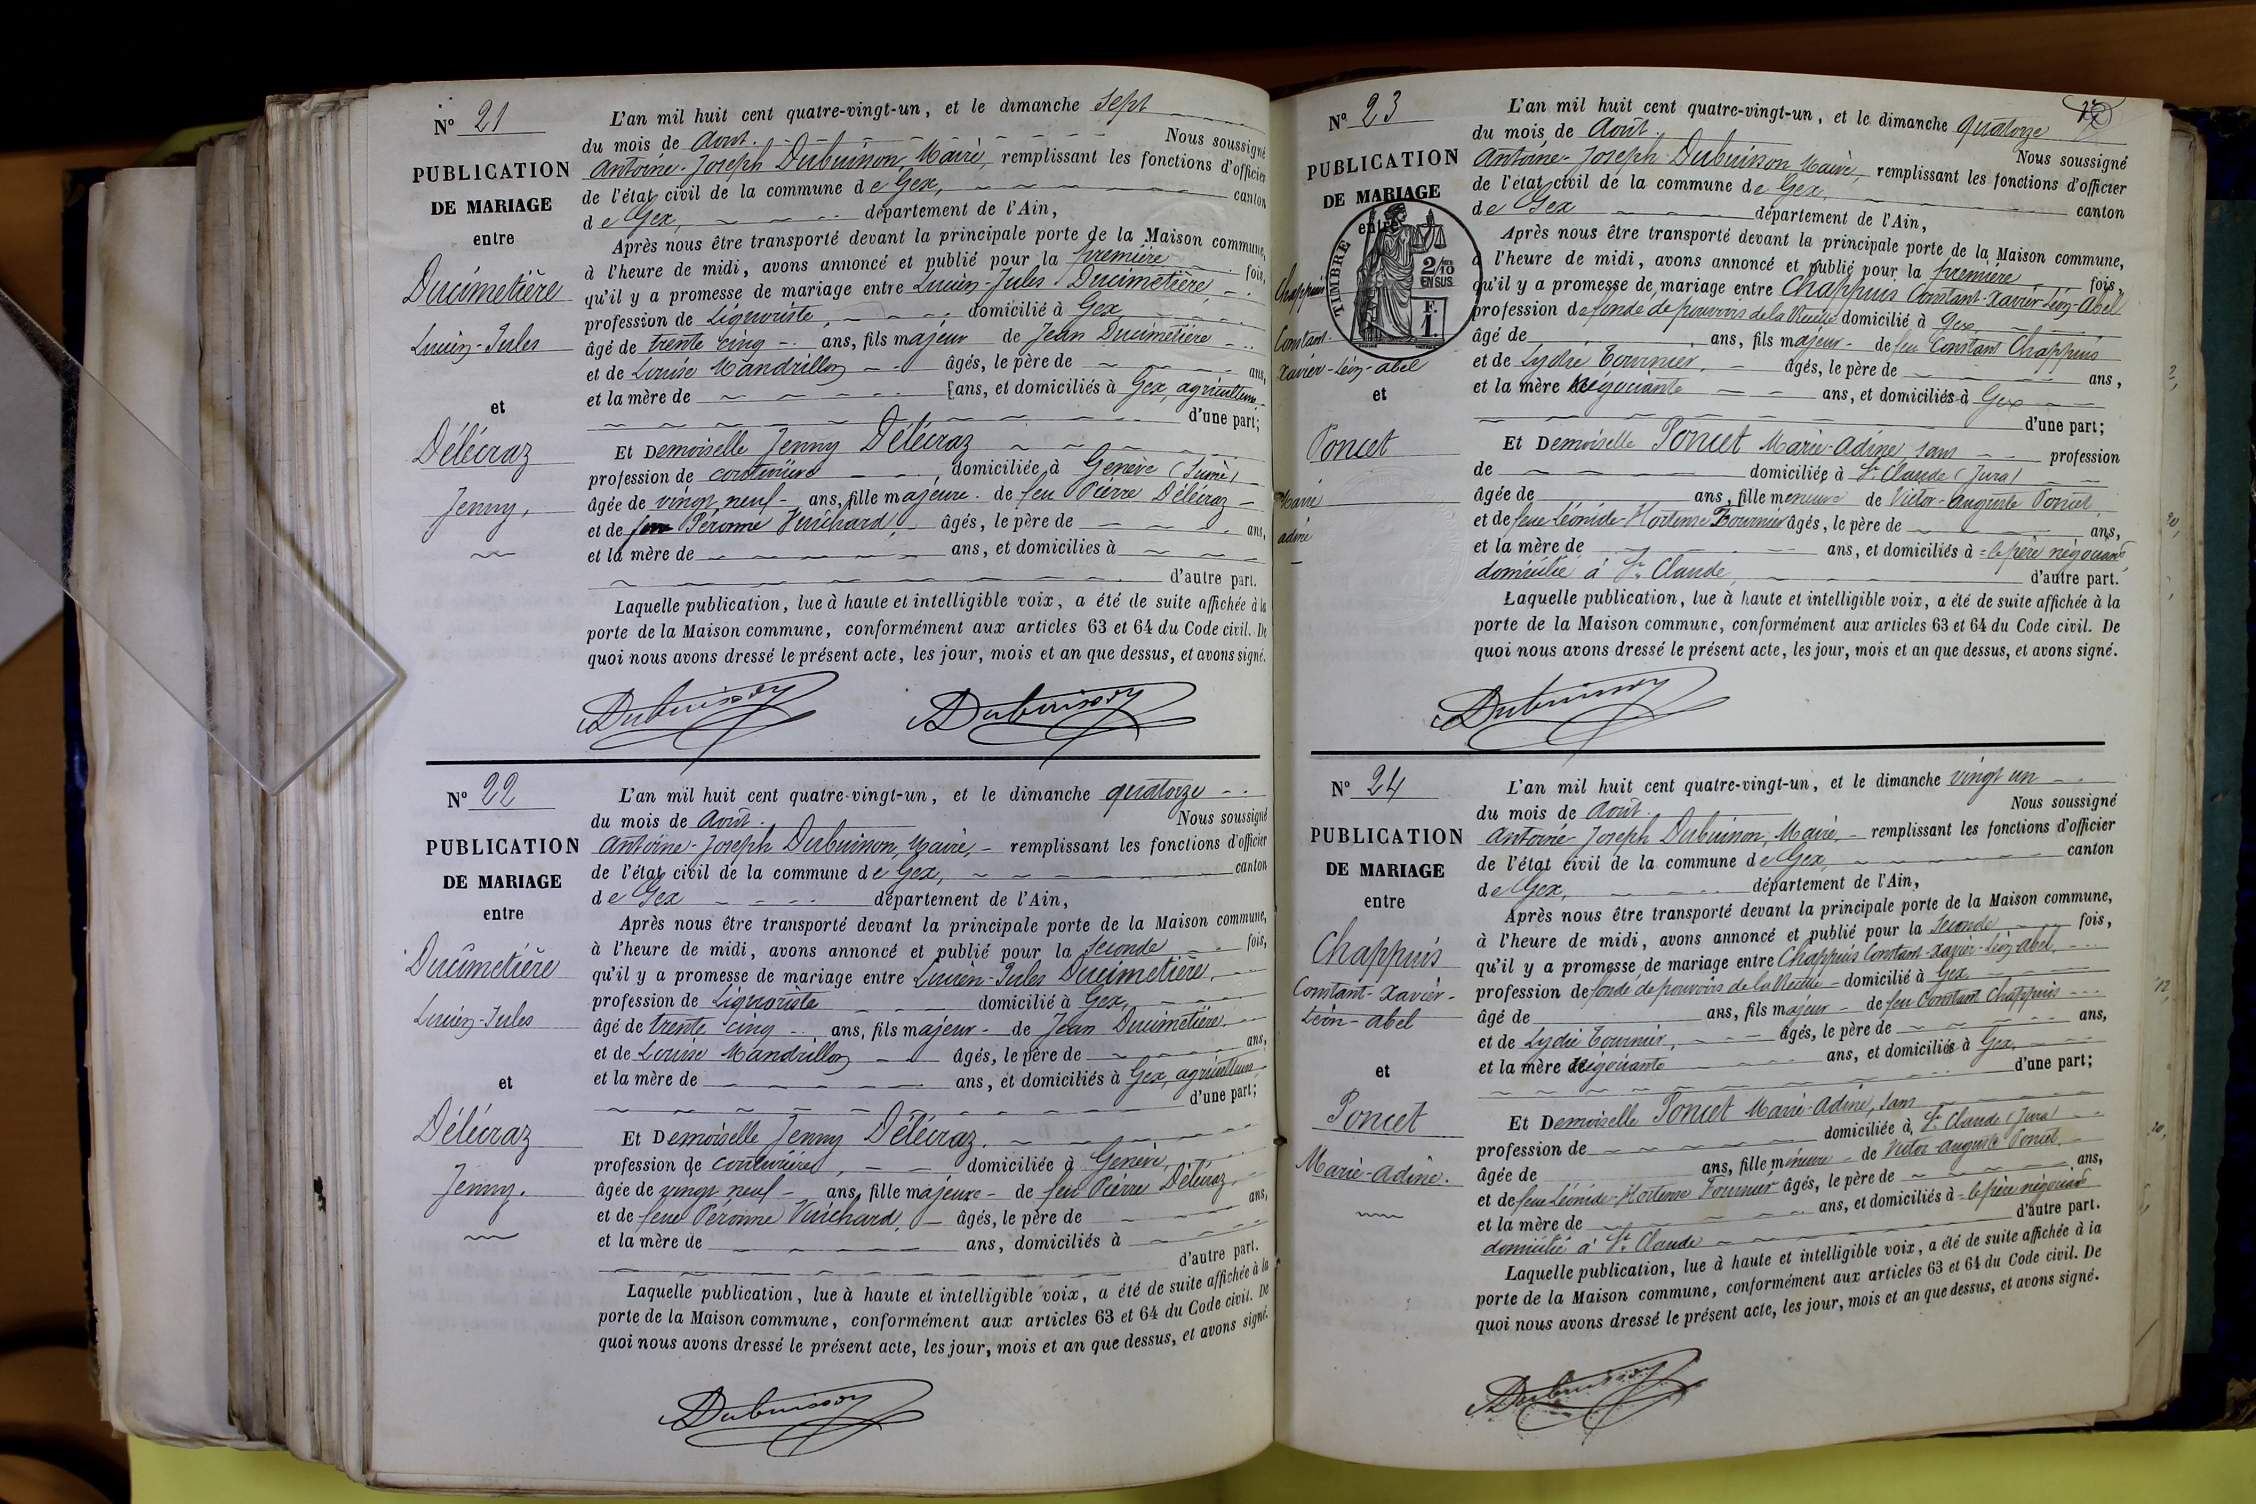 N° 21
PUBLICATION
DE MARIAGE
entre
Ducimetière
Lucien-Jules
et
Délécraz
Jenny.
L'an mil huit cent quatre-vingt-un, et le dimanche sept
du mois de Août. Nous soussigné
Antoine-Joseph Dubuisson, Maire, remplissant les fonctions d'officier
de l'état civil de la commune de Gex, canton
de Gex, département de l'Ain,
Après nous être transporté devant la principale porte de la Maison commune,
à l'heure de midi, avons annoncé et publié pour la première fois,
qu'il y a promesse de mariage entre Lucien-Jules Ducimetière,
profession de Liquoriste, domicilié à Gex
âgé de trente cinq ans, fils majeur de Jean Ducimetière
et de Louise Mandrillon âgés, le père de ans,
et la mère de [ans, et domiciliés à Gex, agriculteurs
d'une part;
Et Demoiselle Jenny Délécraz
profession de couturière domiciliée à Genève (Suisse)
âgée de vingt neuf ans, fille majeure de feu Pierre Délécraz
et de Péronne Vuichard, âgés, le père de ans,
et la mère de ans, et domiciliés à
d'autre part.
Laquelle publication, lue à haute et intelligible voix, a été de suite affichée à la
porte de la Maison commune, conformément aux articles 63 et 64 du Code civil. De
quoi nous avons dressé le présent acte, les jour, mois et an que dessus, et avons signé.
Dubuisson Dubuisson
N° 22
PUBLICATION
DE MARIAGE
entre
Ducimetière
Lucien-Jules
et
Délécraz
Jenny.
L'an mil huit cent quatre-vingt-un, et le dimanche quatorze
du mois de Août. Nous soussigné
Antoine-Joseph Dubuisson, Maire, remplissant les fonctions d'officier
de l'état civil de la commune de Gex, canton
de Gex département de l'Ain,
Après nous être transporté devant la principale porte de la Maison commune,
à l'heure de midi, avons annoncé et publié pour la seconde fois,
qu'il y a promesse de mariage entre Lucien-Jules Ducimetière,
profession de Liquoriste domicilié à Gex,
âgé de trente cinq ans, fils majeur de Jean Ducimetière
et de Louise Mandrillon âgés, le père de ans,
et la mère de ans, et domiciliés à Gex, agriculteurs
d'une part;
Et Demoiselle Jenny Délécraz.
profession de couturière, domiciliée à Genève,
âgée de vingt neuf ans, fille majeure de feu Pierre Délécraz
et de feue Péronne Vuichard, âgés, le père de ans,
et la mère de ans, domiciliés à
d'autre part.
Laquelle publication, lue à haute et intelligible voix, a été de suite affichée à la
porte de la Maison commune, conformément aux articles 63 et 64 du Code civil. De
quoi nous avons dressé le présent acte, les jour, mois et an que dessus, et avons signé.
Dubuisson
N° 23
PUBLICATION
DE MARIAGE
entre
TIMBRE
2/10
EN SUS
F.
1.
Chappuis
Constant-
Xavier-Léon-Abel
et
Poncet
Marie
Adine
L'an mil huit cent quatre-vingt-un, et le dimanche quatorze
du mois de Août. Nous soussigné
Antoine-Joseph Dubuisson, Maire, remplissant les fonctions d'officier
de l'état civil de la commune de Gex, canton
de Gex département de l'Ain,
Après nous être transporté devant la principale porte de la Maison commune,
à l'heure de midi, avons annoncé et publié pour la première fois,
qu'il y a promesse de mariage entre Chappuis Constant-Xavier-Léon-Abel
profession de fondé de pouvoirs de la Recette domicilié à Gex,
âgé de ans, fils majeur de feu Constant Chappuis
et de Lydie Tournier, âgés, le père de ans,
et la mère Négociante ans, et domiciliés à Gex
d'une part;
Et Demoiselle Poncet Marie-Adine, sans profession
de domiciliée à St Claude (Jura)
âgée de ans, fille mineure de Victor-Auguste Poncet,
et de feue Léonide-Hortense Tournier âgés, le père de ans,
et la mère de ans, et domiciliés à le père négociant
domicilié à St Claude, d'autre part.
Laquelle publication, lue à haute et intelligible voix, a été de suite affichée à la
porte de la Maison commune, conformément aux articles 63 et 64 du Code civil. De
quoi nous avons dressé le présent acte, les jour, mois et an que dessus, et avons signé.
Dubuisson
N° 24
PUBLICATION
DE MARIAGE
entre
Chappuis
Constant-Xavier-
Léon-Abel
et
Poncet
Marie-Adine.
L'an mil huit cent quatre-vingt-un, et le dimanche vingt un
du mois de Août. Nous soussigné
Antoine-Joseph Dubuisson, Maire, remplissant les fonctions d'officier
de l'état civil de la commune de Gex, canton
de Gex, département de l'Ain,
Après nous être transporté devant la principale porte de la Maison commune,
à l'heure de midi, avons annoncé et publié pour la seconde fois,
qu'il y a promesse de mariage entre Chappuis Constant-Xavier-Léon-Abel,
profession de fondé de pouvoirs de la Recette domicilié à Gex
âgé de ans, fils majeur de feu Constant Chappuis
et de Lydie Tournier, âgés, le père de ans,
et la mère Négociante ans, et domiciliés à Gex,
d'une part;
Et Demoiselle Poncet Marie-Adine, sans
profession de domiciliée à St Claude (Jura)
âgée de ans, fille mineure de Victor-Auguste Poncet
et de feue Léonide-Hortense Tournier âgés, le père de ans,
et la mère de ans, et domiciliés à le père négociant
domicilié à St Claude d'autre part.
Laquelle publication, lue à haute et intelligible voix, a été de suite affichée à la
porte de la Maison commune, conformément aux articles 63 et 64 du Code civil. De
quoi nous avons dressé le présent acte, les jour, mois et an que dessus, et avons signé.
Dubuisson